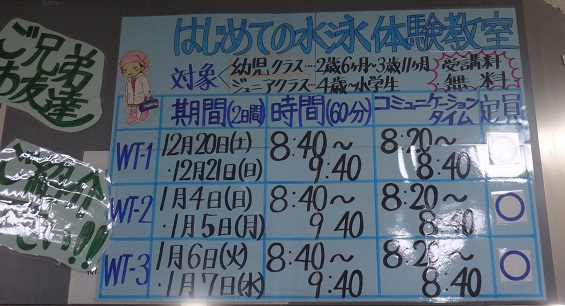 ご兄弟
お友達
ご紹介
さい!!!
はじめての水泳体験教室
対象
幼児クラス…2歳6ヶ月〜3歳11ヶ月
ジュニアクラス…4歳〜小学生
受講料
無料
期間(2日間)
時間(60分)
コミュニケーション
タイム
定員
WT-1
12月20日(土)
・12月21日(日)
8:40〜
9:40
8:20〜
8:40
WT-2
1月4日(日)
・1月5日(月)
8:40〜
9:40
8:20〜
8:40
○
WT-3
1月6日(火)
・1月7日(水)
8:40〜
9:40
8:20〜
8:40
○